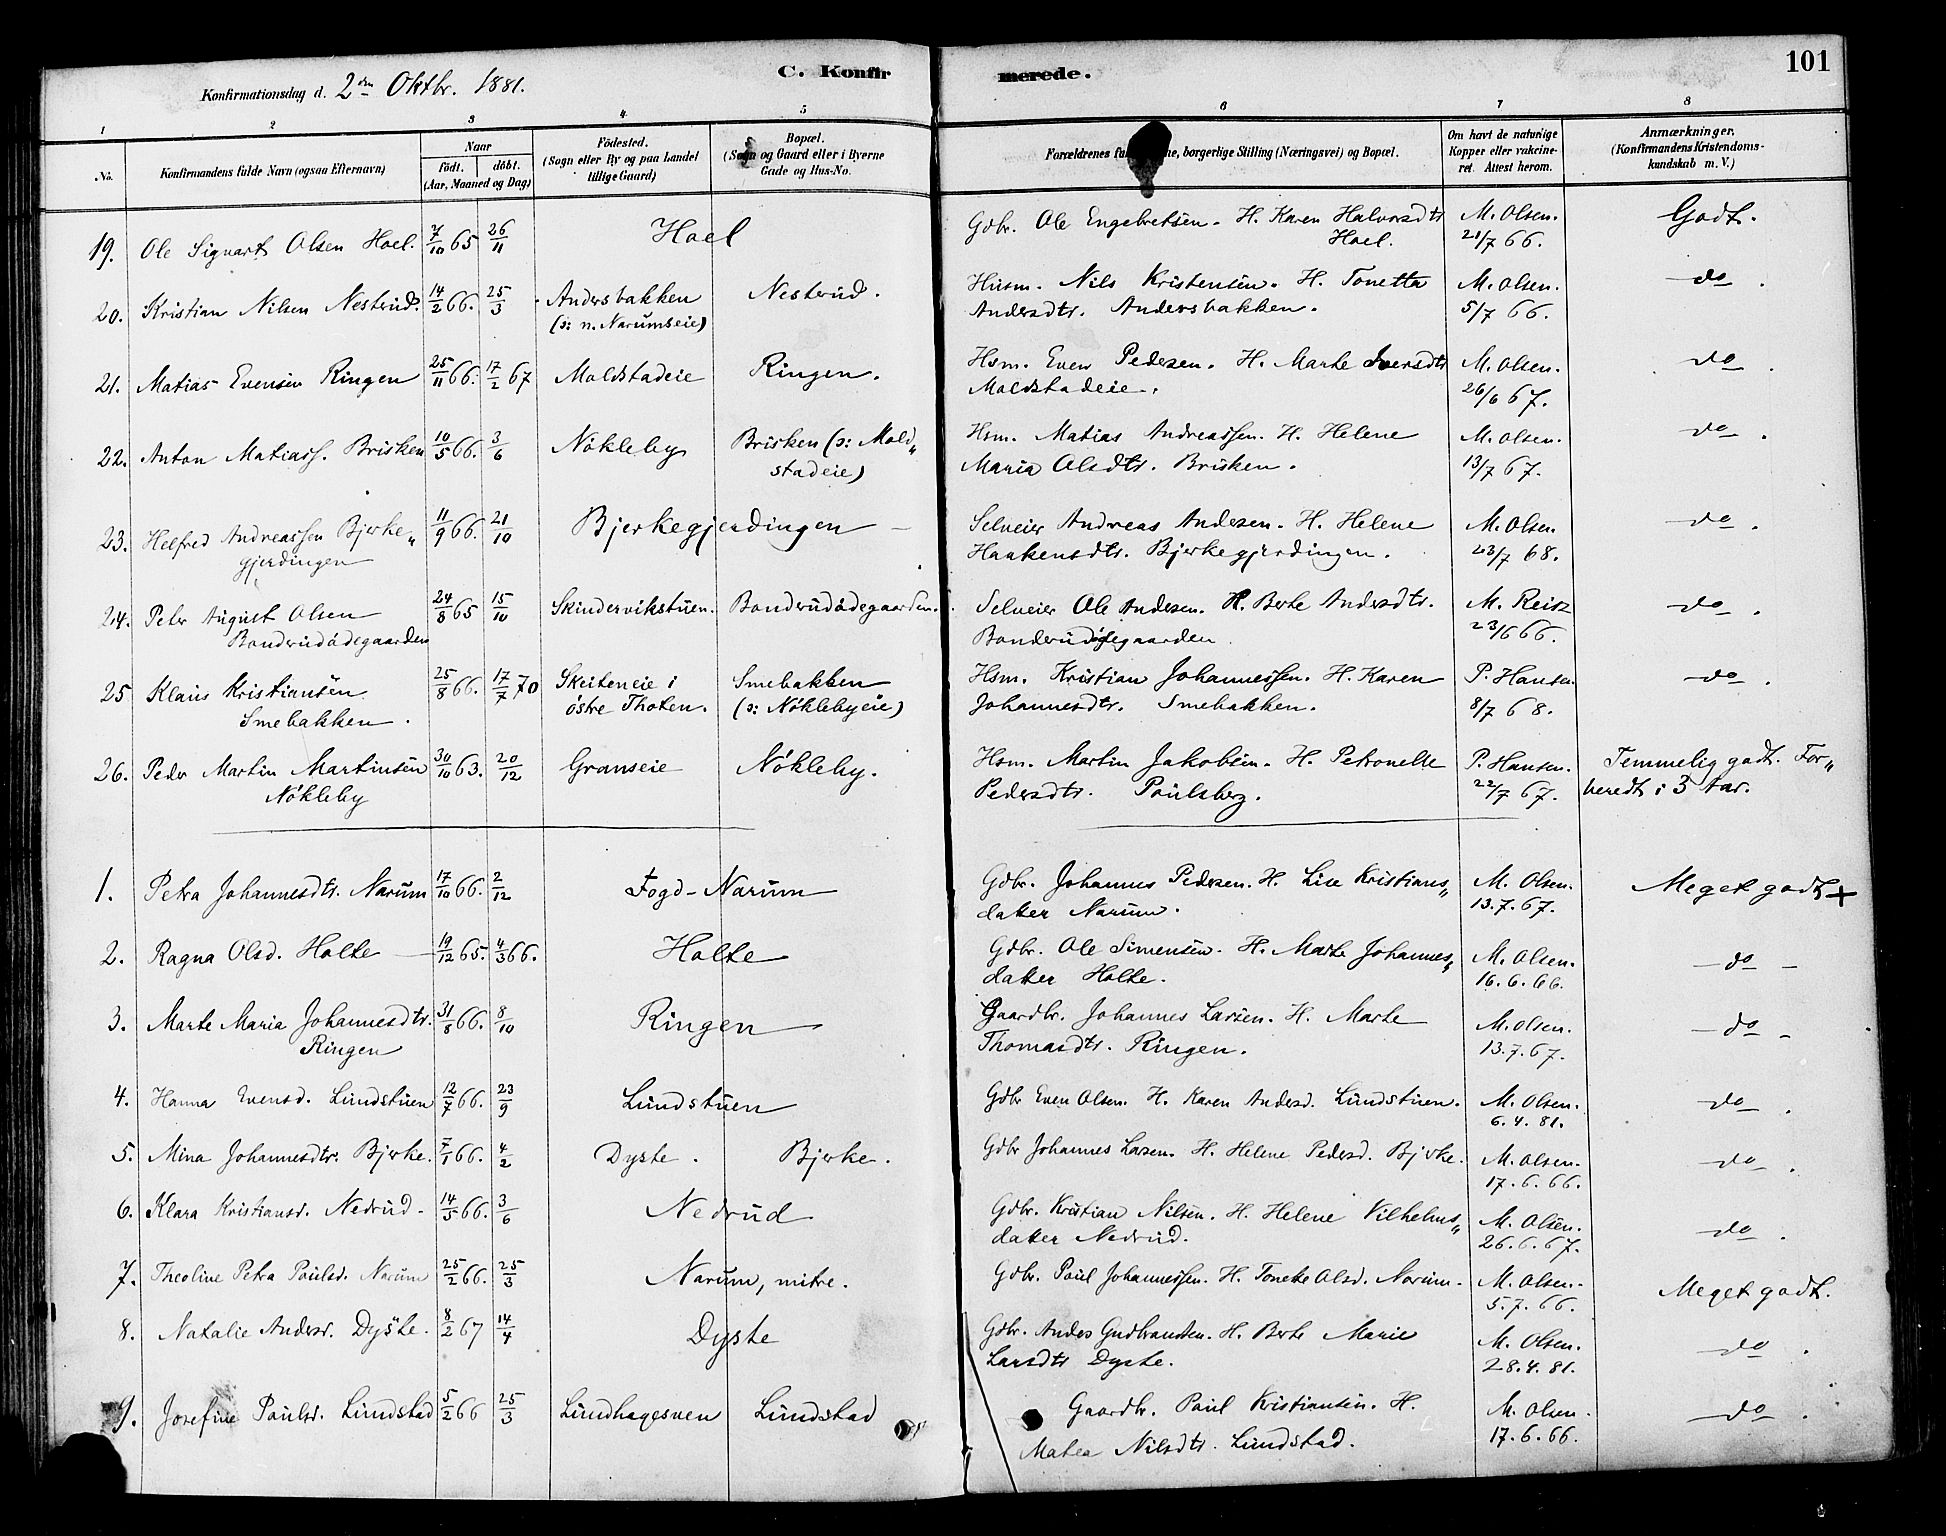 C. Konfirmerede.
101
Konfirmationsdag d. 2den Oktbr. 1881.
1 2 3 4 5 6 7 8
No.
Konfirmandens fulde Navn (ogsaa Efternavn)
Naar
födt. döbt.
(Aar, Maaned og Dag)
Födested.
(Sogn eller By og paa Landet
tillige Gaard)
Bopæl.
(Sogn og Gaard eller i Byerne
Gade og Hus-No.
Forældrenes fulde Navne, borgerlige Stilling (Næringsvei) og Bopæl.
Om havt de naturlige
Kopper eller vakcine-
ret. Attest herom.
Anmærkninger.
(Konfirmandens Kristendoms-
kundskab m. V.)
19. Ole Sigvart Olsen Hoel. 7/10 65 26/11 Hoel Gdbr. Ole Engebretsen. H. Karen Halvorsdtr M. Olsen. Godt.
Hoel. 21/7 66.
20. Kristian Nilsen Nesterud. 14/2 66. 25/3 Andersbakken Nesterud. Husm. Nils Kristensen. H. Tonetta M. Olsen. do.
(ɔ: n. Narumseie) Andersdtr. Andersbakken. 5/7 66.
21. Matias Evensen Ringen 25/11 66. 17/2 67 Moldstadeie Ringen. Hsm. Even Pedersen. H. Marte Iversdtr M. Olsen. do.
Moldstadeie. 26/6 67.
22. Anton Matiass. Brisken 10/5 66. 3/6 Nökleby Brisken (ɔ: Mold„ Hsm. Matias Andreassen. H. Helene M. Olsen. do.
stadeie) Maria Olsdtr. Brisken. 13/7 67.
23. Helfred Andreassen Bjerke„ 11/9 66. 21/10 Bjerkegjerdingen Selveier Andreas Andersen. H. Helene M. Olsen do.
gjerdingen Haakensdtr. Bjerkegjerdingen. 23/7 68.
24. Peter August Olsen 24/8 65 15/10 Skindervikstuen. Bonderudödegaarden. Selveier Ole Andersen. H. Berte Andersdtr. M. Reisz do.
Bonderudödegaarden Bonderudödegaarden. 23/6 66.
25 Klaus Kristiansen 25/8 66. 17/7 70 Skiteneie i Smebakken Hsm. Kristian Johannessen. H. Karen P. Hansen. do.
Smebakken. östre Thoten. (ɔ: Nöklebyeie) Johannesdtr. Smebakken. 8/7 68.
26. Peder Martin Martinsen 30/10 63. 20/12 Granseie Nökleby. Hsm. Martin Jakobsen. H. Petronelle P. Hansen. Temmelig godt. For„
Nökleby Pedersdtr. Paulsberg. 22/7 67. beredt i 3 Aar.
1. Petra Johannesdtr. Narum 17/10 66. 2/12 Fogd-Narum Gdbr. Johannes Pedersen. H. Lise Kristians„ M. Olsen. Meget godt +
datter Narum. 13.7.67.
2. Ragna Olsd. Holte 19/12 65. 4/3 66. Holte Gdbr. Ole Simensen. H. Marte Johannes„ M. Olsen. do
datter Holte. 16.6.66.
3. Marte Maria Johannesdtr. 31/8 66. 8/10 Ringen Gaardbr. Johannes Larsen. H. Marte M. Olsen. do
Ringen Thomasdtr. Ringen. 13.7.67.
4. Hanna Evensd. Lundstuen 12/7 66. 23/9 Lundstuen Gdbr Even Olsen. H. Karen Andersd. Lundstuen. M. Olsen. do.
6.4.81.
5. Mina Johannesdtr. Bjerke. 7/1 66. 4/2 Dyste. Bjerke. Gdbr Johannes Larsen. H. Helene Pedersd. Bjerke. M. Olsen. do.
17.6.66.
6. Klara Kristiansd. Nedrud. 14/5 66. 3/6 Nedrud Gdbr. Kristian Nilsen. H. Helene Vilhelms„ M. Olsen. do.
datter Nedrud. 26.6.67.
7. Theoline Petra Paulsd. Narum 25/2 66. 25/3 Narum, mitre. Gdbr. Paul Johannessen. H. Tonette Olsd. Narum. M. Olsen. Meget godt.
5.7.66.
8. Natalie Andersd. Dyste. 8/2 67 14/4 Dyste Gdbr. Andes Gudbrandsen. H. Berte Marie M. Olsen. do.
Larsdtr Dyste. 28.4.81.
9. Josefine Paulsd. Lundstad 5/2 66 25/3 Lundhagesven Lundstad Gaardbr. Paul Kristiansen. H. M. Olsen. do.
Matea Nilsdtr. Lundstad. 17.6.66.